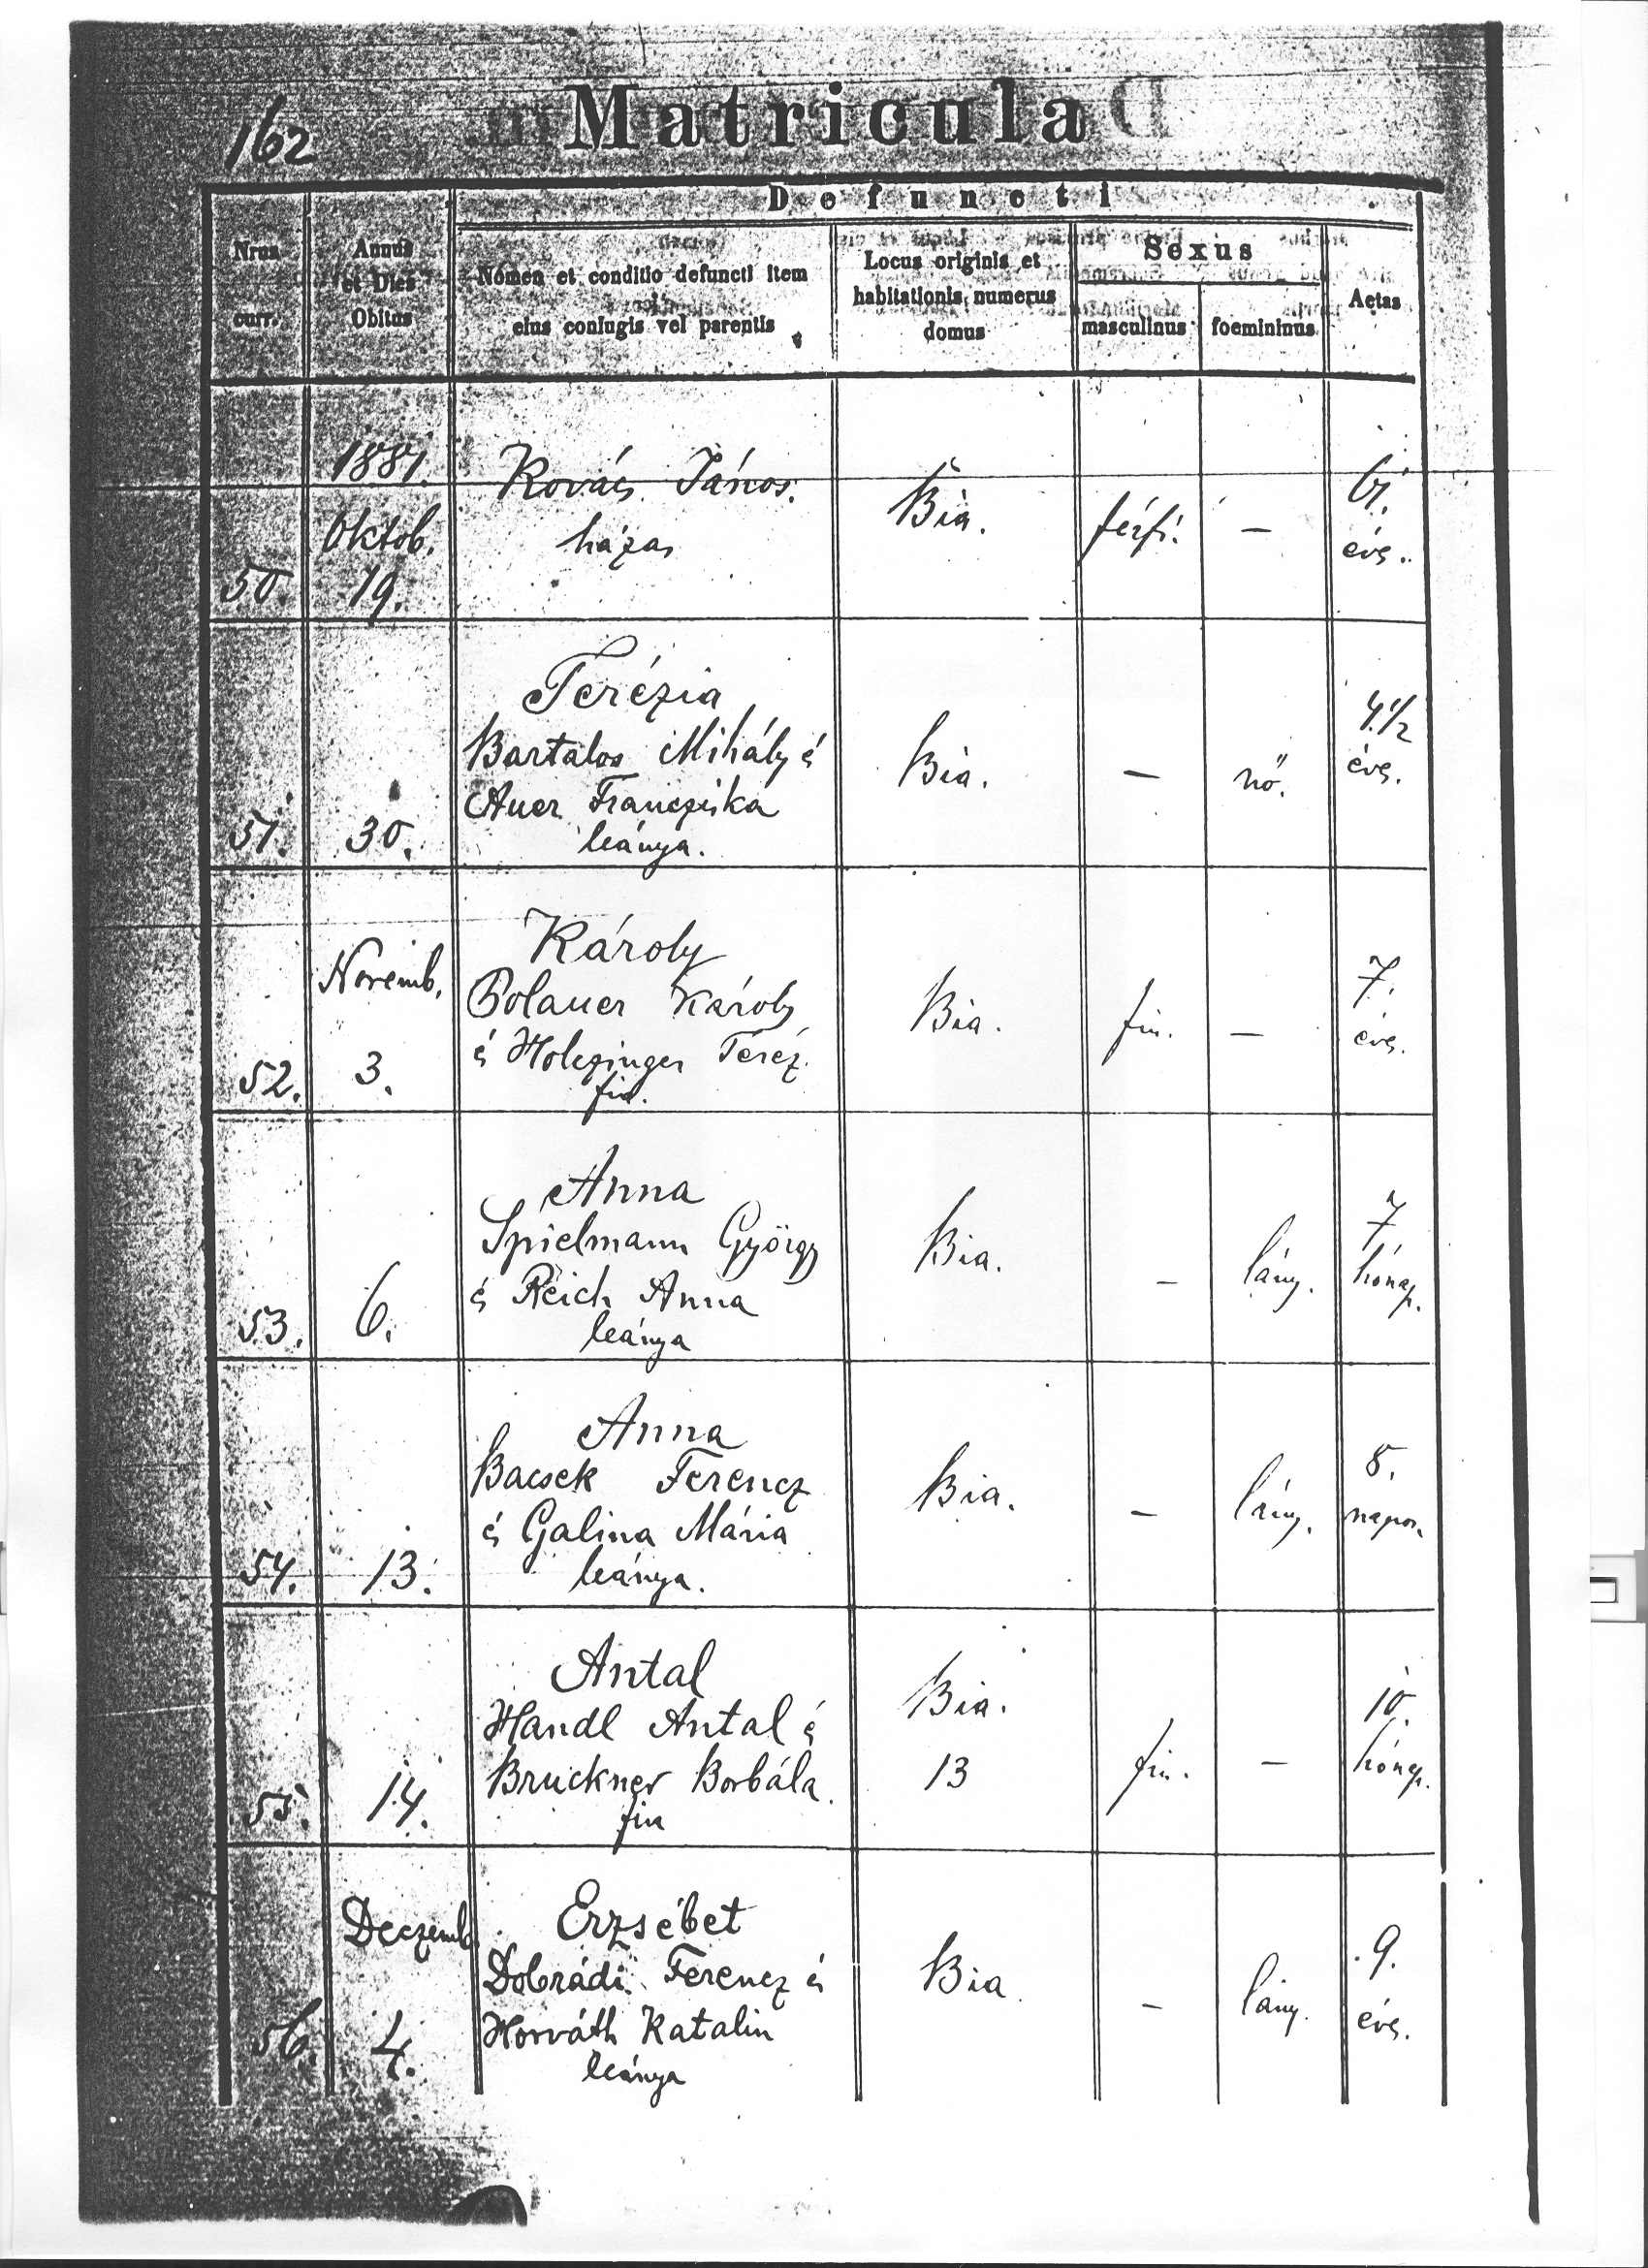 162
Matricula
Defuncti
Nrus
curr.
Annus
et Dies
Obitus
Nomen et conditio defuncti item
eius coniugis vel parentis
Locus originis et
habitationis, numerus
domus
Sexus
masculinus
foemininus
Aetas
50.
1887.
Oktob.
19.
Kovács János.
házas
Bia.
férfi.
—
61.
éves.
51.
30.
Terézia
Bartalos Mihály és
Auer Francziska
leánya.
Bia.
—
nő.
4.1/2
éves.
52.
Novemb.
3.
Károly
Polauer Károly
és Holczinger Teréz
fia.
Bia.
fiu.
—
7.
éves.
53.
6.
Anna
Spielmann György
és Reich Anna
leánya
Bia.
—
lány.
7
hónap.
54.
13.
Anna
Bacsek Ferencz
és Galina Mária
leánya.
Bia.
—
lány.
8.
napos.
55.
14.
Antal
Handl Antal és
Bruckner Borbála
fia
Bia.
13
fiu.
—
10.
hónap.
56.
Deczemb.
4.
Erzsébet
Dobrádi Ferencz és
Horváth Katalin
leánya
Bia
—
lány.
9.
éves.